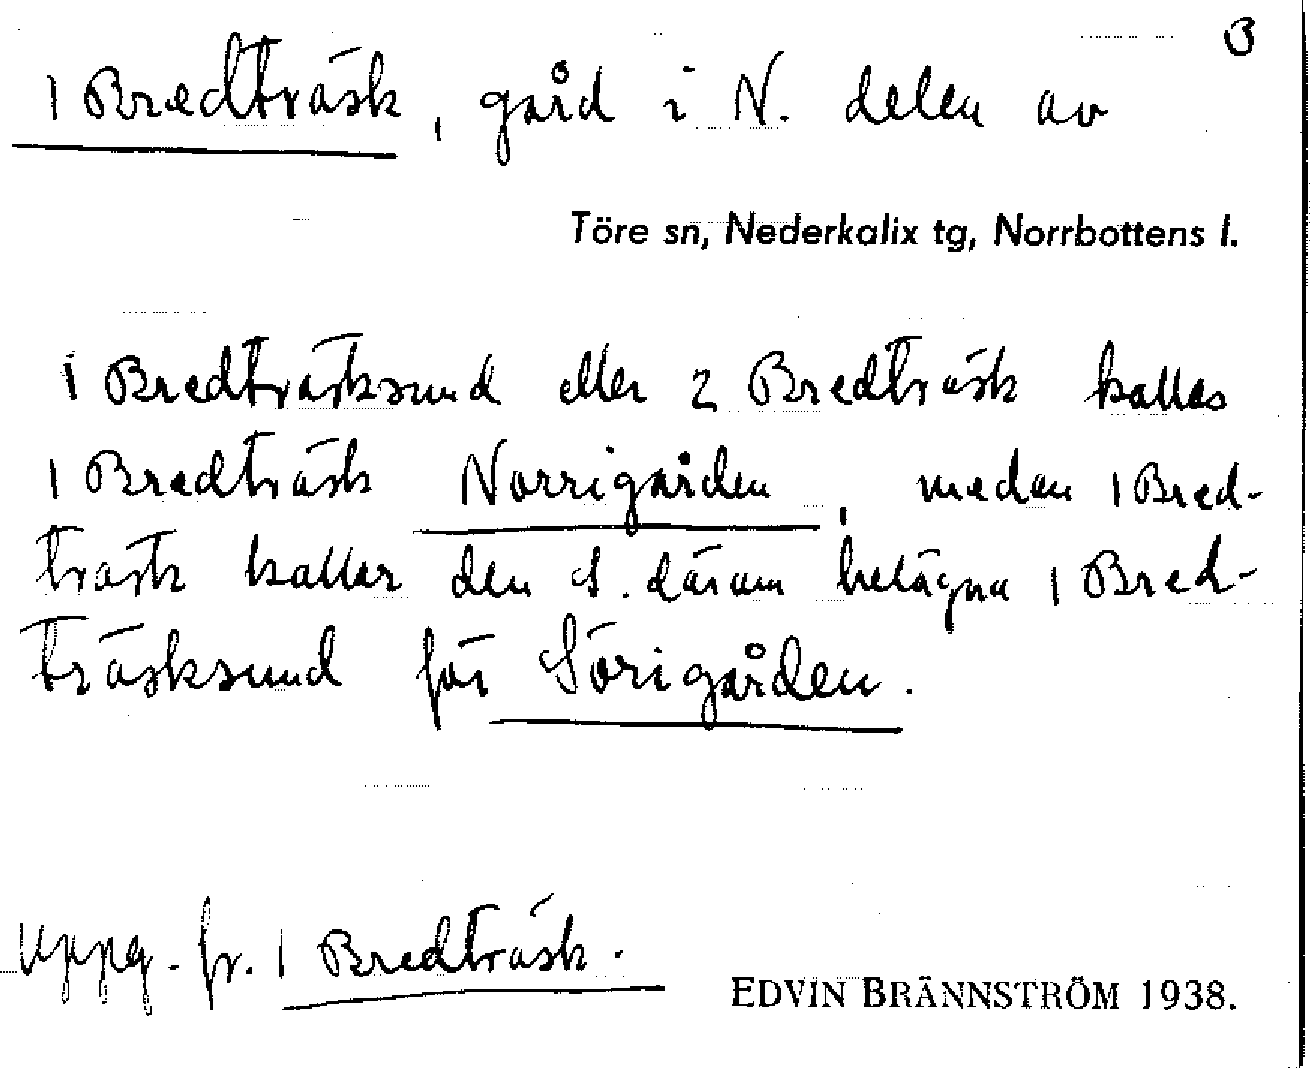 B
1 Bredträsk, gård i N. delen av
Töre sn, Nederkalix tg, Norrbottens l.
1 Bredträsksund eller 2 Bredträsk kallas
1 Bredträsk Norrigården, medan 1 Bred-
träsk kallar den S. därom belägna 1 Bred-
träsksund för Sörigården.
Uppg. fr. 1 Bredträsk.
EDVIN BRÄNNSTRÖM 1938.